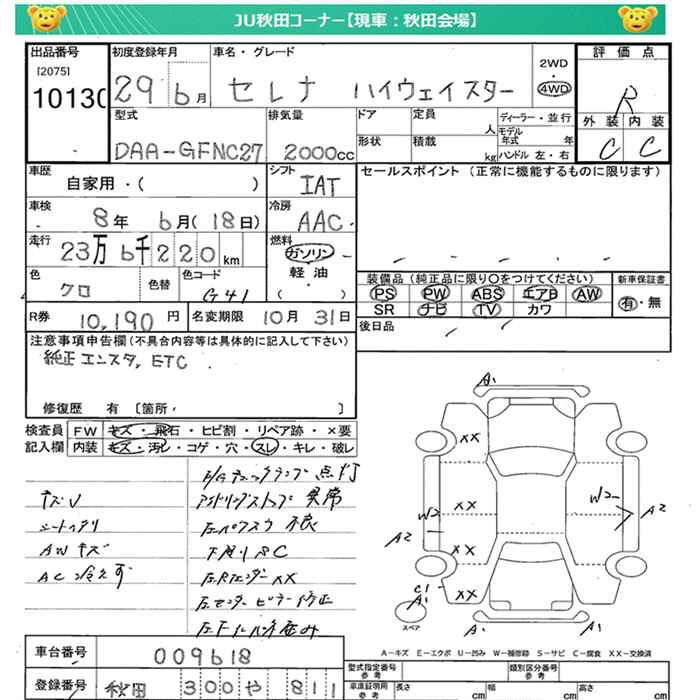 JU秋田コーナー【現車：秋田会場】
出品番号 初度登録年月 車名・グレード 評価点
[2075]
10130 29 6月 セレナ ハイウェイスター 2WD・4WD R
型式 排気量 ドア 定員 人 ディーラー・並行 外装 内装
DAA-GFNC27 2000cc 形状 積載 kg モデル年式 年 ハンドル 左・右 C C
車歴 シフト セールスポイント（正常に機能するものに限ります）
自家用・（ ） IAT
車検 冷房
8年 6月（18日） AAC
走行 燃料
23万6千220km ガソリン・軽油・（ ）
色 色替 色コード 装備品（純正品に限り○をつけてください） 新車保証書
クロ G41 PS PW ABS エアB AW 有・無
SR ナビ TV カワ
R券 10,190円 名変期限 10月31日 後日品
注意事項申告欄（不具合内容等は具体的に記入して下さい）
純正エンスタ, ETC
修復歴 有 〔箇所, 〕
検査員 FW キズ・飛石・ヒビ割・リペア跡・×要
記入欄 内装 キズ・汚レ・コゲ・穴・スレ・キレ・破レ
E/Gチェックランプ点灯
キズU
アイドリングストップ異常
AWキズ
AC冷えず
左Rフェンダー XX
左センターピラー修正
A1
XX
XX
W2
W2
A2
A2
XX
C1
A1
XX
スペア
A1
A1
A－キズ E－エクボ U－凹み W－補修跡 S－サビ C－腐食 XX－交換済
車台番号 009618 型式指定番号 参考 類別区分番号 参考
登録番号 秋田 300 や 811 車庫証明用 参考 長さ cm 幅 cm 高さ cm